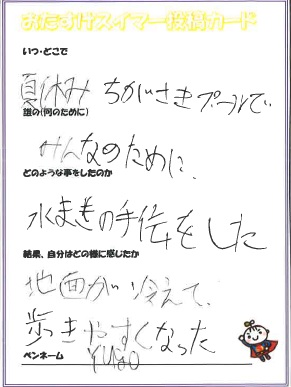 おたすけスイマー投稿カード
いつ・どこで
夏休み ちがさきプールで、
誰の(何のために)
みんなのために、
どのような事をしたのか
水まきの手伝をした
結果、自分はどの様に感じたか
地面が冷えて、
歩きやすくなった
ペンネーム